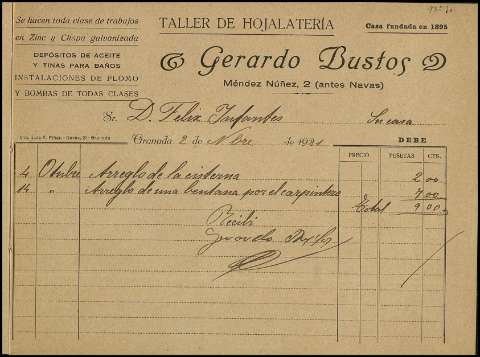 Se hacen toda clase de trabajos
en Zinc y Chapa galvanizada
DEPÓSITOS DE ACEITE
Y TINAS PARA BAÑOS
INSTALACIONES DE PLOMO
Y BOMBAS DE TODAS CLASES
TALLER DE HOJALATERÍA
Casa fundada en 1895
Gerardo Bustos
Méndez Núñez, 2 (antes Navas)
Sr. D. Felix Infantes Su casa
Granada 2 de Nbre de 1921
DEBE
PRECIO PESETAS CTS.
4 Otubre Arreglo de la cisterna 2 00
14 " Arreglo de una bentana por el carpintero 7 00
Total 9 00
Recibi
Gerardo Bustos